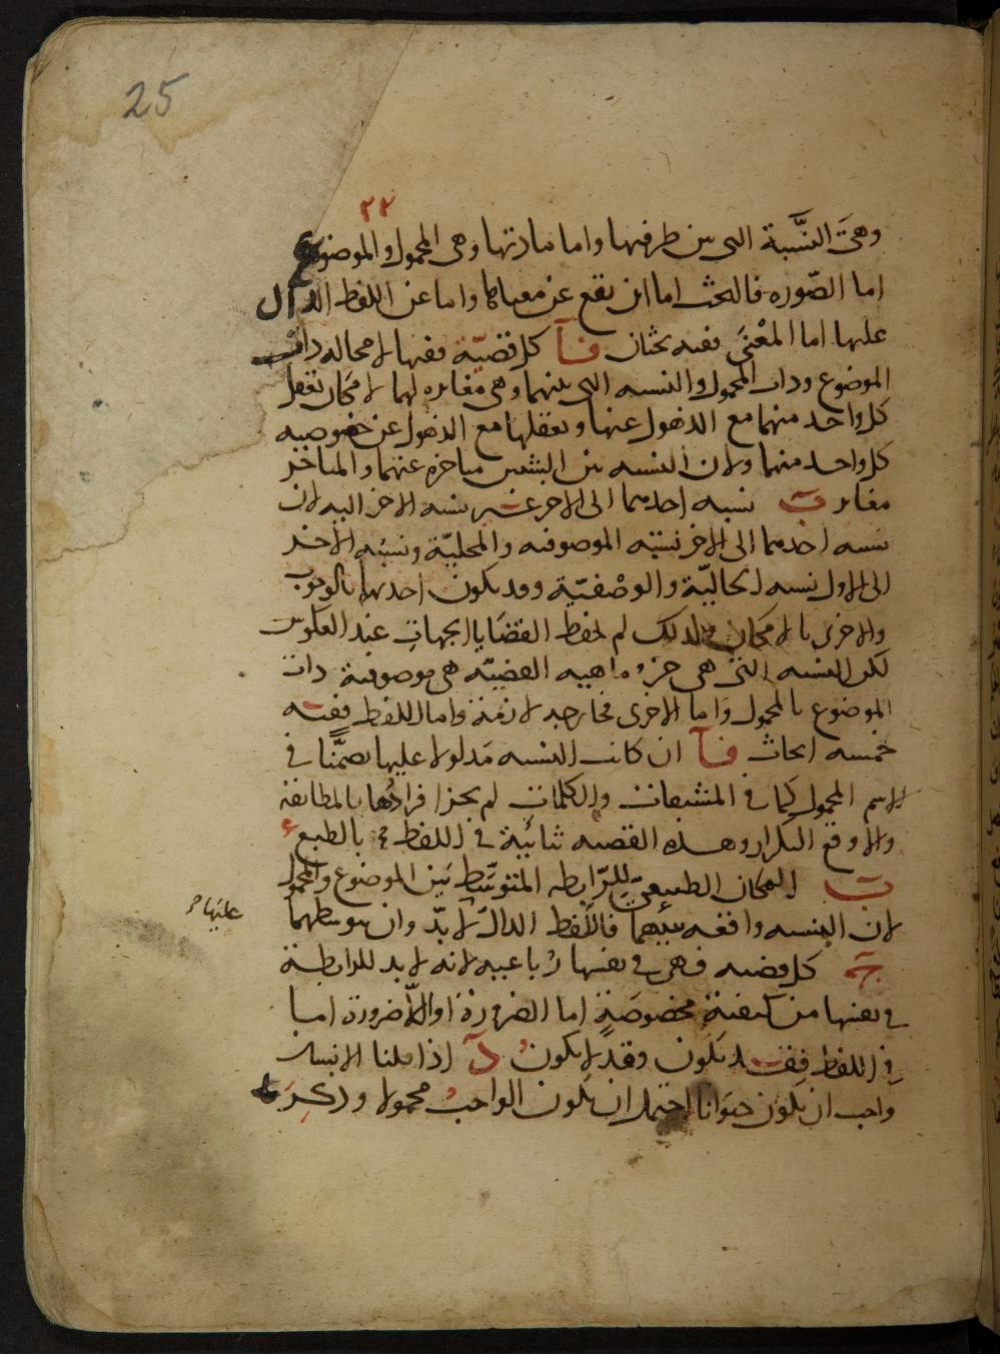 25
٢٢
وهي النسبة التي بين طرفيها واما مادتها وهي المحمول والموضوع
اما الصورة فالبحث اما ان يقع عن معناها واما عن اللفظ الدال
عليها اما المعنى ففيه بحثان فـ آ كل قضية ففيها لا محالة ذات
الموضوع وذات المحمول والنسبة التي بينهما وهي مغايرة لهما لامكان تعقل
كل واحد منهما مع الذهول عنها وتعقلها مع الذهول عن خصوصية
كل واحد منهما ولان النسبة بين الشيئين متاخرة عنهما والمتاخر
مغاير ب نسبة احدهما الى الاخر غير نسبة الاخر اليه لان
نسبة احدهما الى الاخر نسبة الموصوفية والمحلية ونسبة الاخر
الى الاول نسبة الحالية والوصفية وقد يكون احديهما بالوجوب
والاخرى بالامكان ولذلك لم تحفظ القضايا الجهات عند العكوس
لكن النسبة التي هي جزء ماهية القضية هي موصوفية ذات
الموضوع بالمحمول واما الاخرى فخارجة لازمة واما اللفظ ففيه
خمسة ابحاث فـ آ ان كانت النسبة مدلولا عليها تضمنا في
الاسم المحمول كما في المشتقات والكلمات لم يجز افرادها بالمطابقة
والا وقع التكرار وهذه القضية ثنائية في اللفظ بالطبع
ب المكان الطبيعي للرابطة المتوسط بين الموضوع والمحمول
لان النسبة واقفة بينهما فاللفظ الدال لا بد وان يتوسطهما
عليها
ج كل قضية فهي في نفسها رباعية لانه لا بد للرابطة
في نفسها من كيفية مخصوصة اما الضرورة او اللاضرورة اما
في اللفظ فقد تكون وقد لا تكون د اذا قلنا الانسان
واجب ان يكون حيوانا احتمل ان يكون الواجب محمولا وذكر